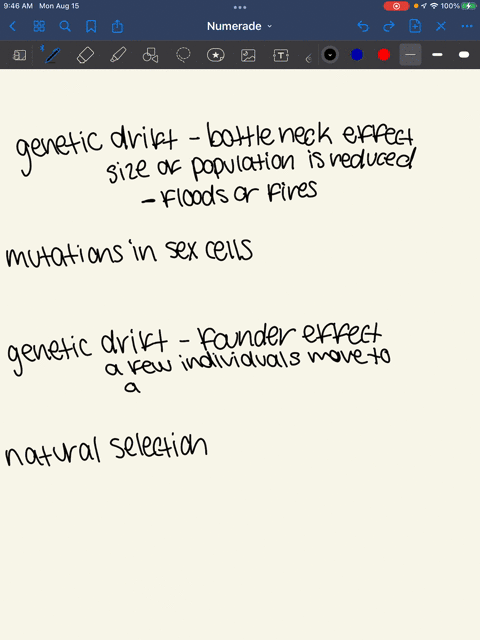 9:46 AM Mon Aug 15
100%
Numerade
genetic drift - bottle neck effect
size of population is reduced
- floods or fires
mutations in sex cells
genetic drift - founder effect
a few individuals move to
a
natural selection